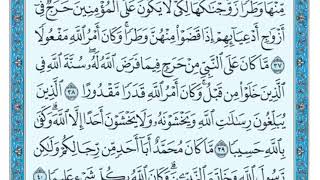 مِّنْهَا وَطَرًا زَوَّجْنَٰكَهَا لِكَيْ لَا يَكُونَ عَلَى ٱلْمُؤْمِنِينَ حَرَجٌ فِىٓ
أَزْوَٰجِ أَدْعِيَآئِهِمْ إِذَا قَضَوْا۟ مِنْهُنَّ وَطَرًا ۚ وَكَانَ أَمْرُ ٱللَّهِ مَفْعُولًا
٣٧ مَّا كَانَ عَلَى ٱلنَّبِىِّ مِنْ حَرَجٍ فِيمَا فَرَضَ ٱللَّهُ لَهُۥ ۖ سُنَّةَ ٱللَّهِ فِى
ٱلَّذِينَ خَلَوْا۟ مِن قَبْلُ ۚ وَكَانَ أَمْرُ ٱللَّهِ قَدَرًا مَّقْدُورًا ٣٨ ٱلَّذِينَ
يُبَلِّغُونَ رِسَٰلَٰتِ ٱللَّهِ وَيَخْشَوْنَهُۥ وَلَا يَخْشَوْنَ أَحَدًا إِلَّا ٱللَّهَ ۗ وَكَفَىٰ
بِٱللَّهِ حَسِيبًا ٣٩ مَّا كَانَ مُحَمَّدٌ أَبَآ أَحَدٍ مِّن رِّجَالِكُمْ وَلَٰكِن
رَّسُولَ ٱللَّهِ وَخَاتَمَ ٱلنَّبِيِّـۧنَ ۗ وَكَانَ ٱللَّهُ بِكُلِّ شَىْءٍ عَلِيمًا